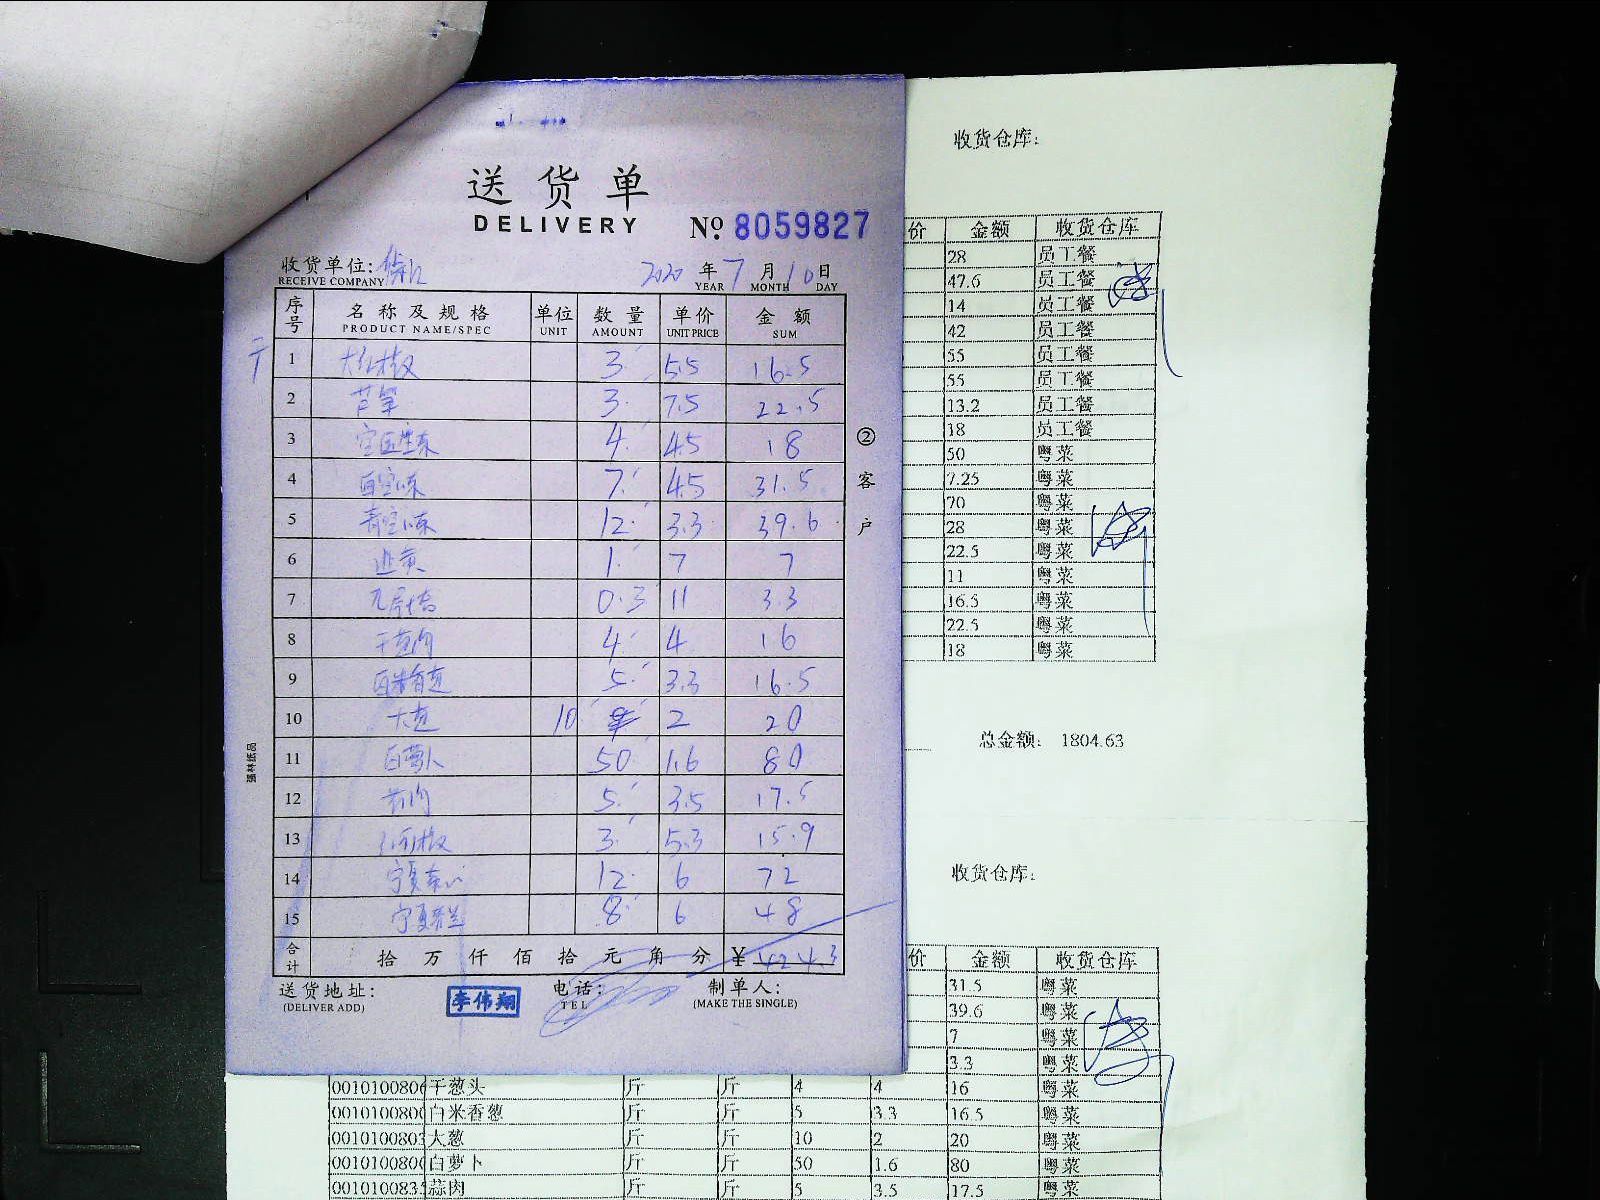 送货单
DELIVERY
№ 8059827
收货单位:
RECEIVE COMPANY
2020 年 7 月 10 日
YEAR MONTH DAY
序号 名称及规格 单位 数量 单价 金额
PRODUCT NAME/SPEC UNIT AMOUNT UNIT PRICE SUM
1 大红椒 3 5.5 16.5
2 芦笋 3 7.5 22.5
3 4 4.5 18
4 7 4.5 31.5
5 12 3.3 39.6
6 1 7 7
7 0.3 11 3.3
8 干葱肉 4 4 16
9 白米香葱 5 3.3 16.5
10 大葱 10 2 20
11 白萝卜 50 1.6 80
12 5 3.5 17.5
13 3 5.3 15.9
14 宁夏菜心 12 6 72
15 宁夏芥兰 8 6 48
合计 拾 万 仟 佰 拾 元 角 分 ¥ 424.3
送货地址: 电话: 制单人:
(DELIVER ADD) TEL (MAKE THE SINGLE)
李伟翔
②客户
强林纸品
收货仓库:
价 金额 收货仓库
28 员工餐
47.6 员工餐
14 员工餐
42 员工餐
55 员工餐
55 员工餐
13.2 员工餐
18 员工餐
50 粤菜
7.25 粤菜
70 粤菜
28 粤菜
22.5 粤菜
11 粤菜
16.5 粤菜
22.5 粤菜
18 粤菜
总金额: 1804.63
收货仓库:
价 金额 收货仓库
31.5 粤菜
39.6 粤菜
7 粤菜
3.3 粤菜
干葱头 斤 斤 4 4 16 粤菜
白米香葱 斤 斤 5 3.3 16.5 粤菜
大葱 斤 斤 10 2 20 粤菜
白萝卜 斤 斤 50 1.6 80 粤菜
蒜肉 斤 斤 5 3.5 17.5 粤菜